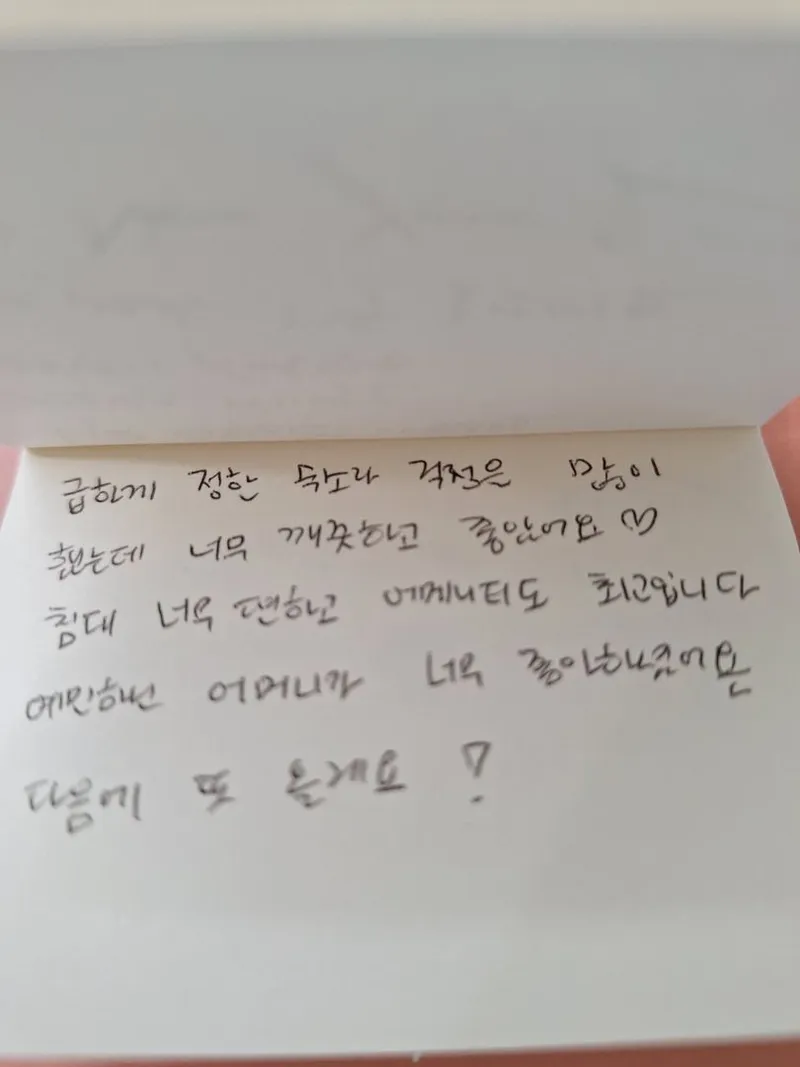 급하게 정한 숙소라 걱정은 많이
했는데 너무 깨끗하고 좋았어요 ♡
침대 너무 편하고 어메니티도 최고입니다
예민하신 어머니가 너무 좋아하셨어요
다음에 또 올게요!